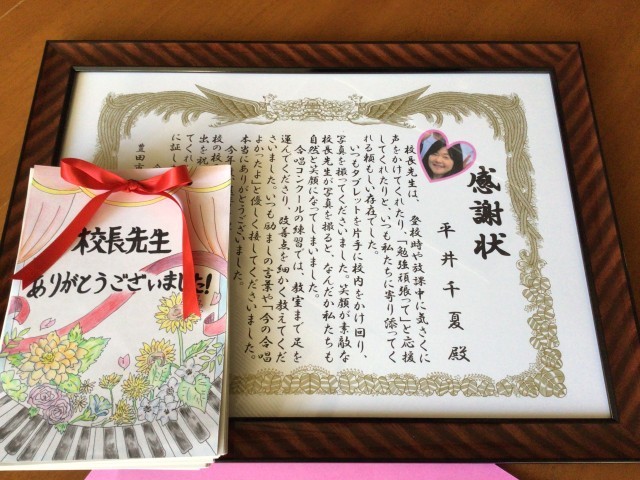 感謝状
平井千夏 殿
校長先生は、登校時や放課中に気さくに
声をかけてくれたり、「勉強頑張って」と応援
してくれたりと、いつも私たちに寄り添ってく
れる頼もしい存在でした。
いつもタブレットを片手に校内をかけ回り、
写真を撮ってくださいました。笑顔が素敵な
校長先生が写真を撮ると、なんだか私たちも
自然と笑顔になってしまいました。
合唱コンクールの練習では、教室まで足を
運んでくださり、改善点を細かく教えてくだ
さいました。いつも励ましの言葉や「今の合唱
よかったよ」と優しく接してくださいました。
本当にありがとうございました。
今年
校の校
出を祝
てくれ
に証し
豊田市
校長先生
ありがとうございました!